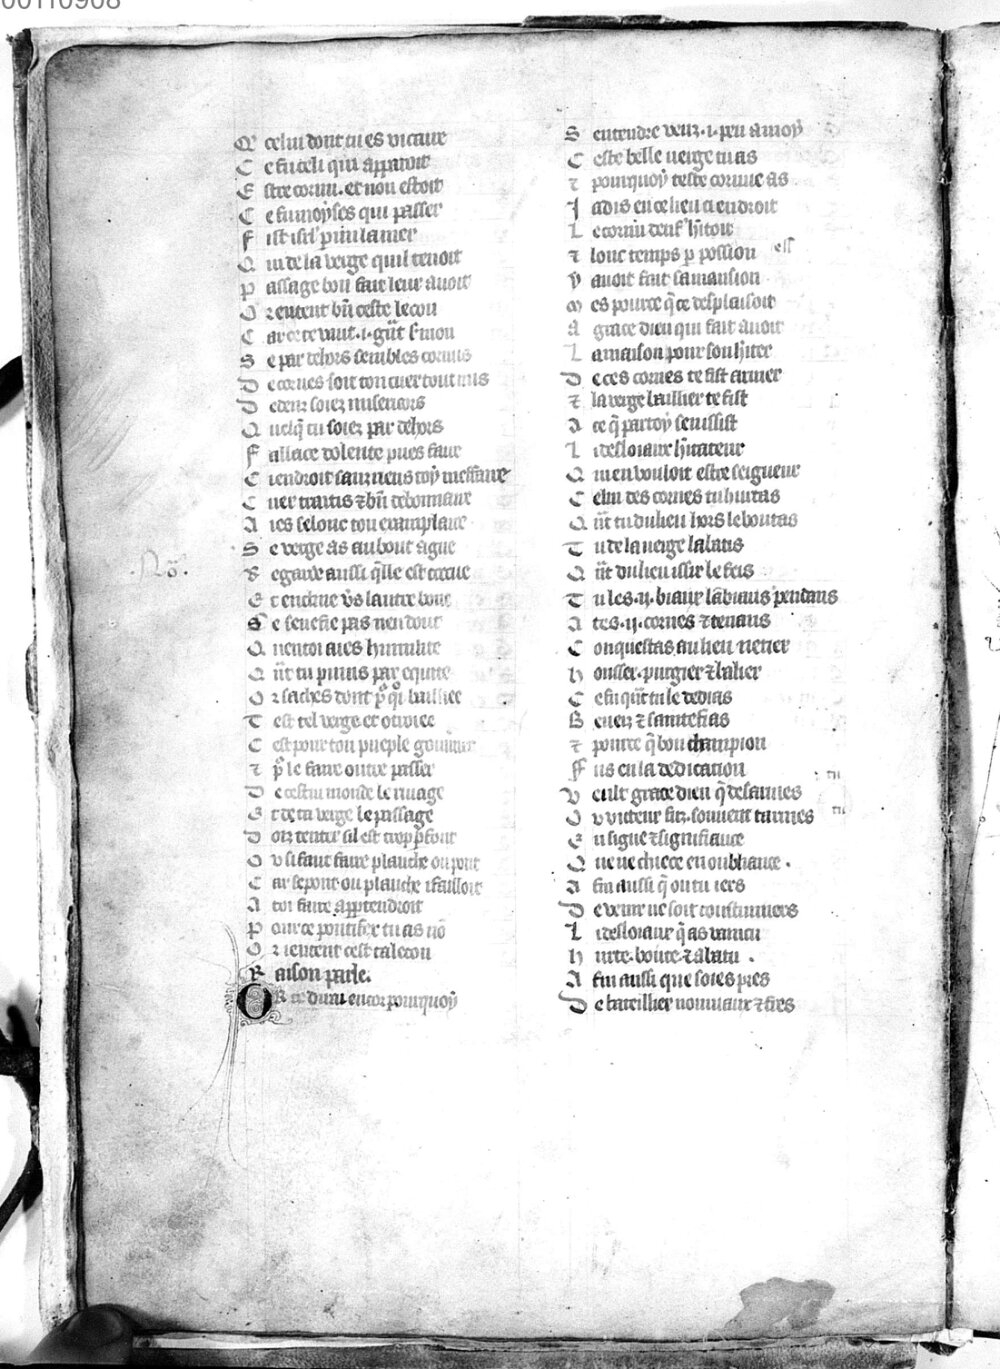 00110908
Q celui dont tu es vicaire
C e fu celi qui apparoit
E stre cornu . et non estoit
C e fu moyses qui passer
F ist isrl' p mi la mer
Q ui de la verge quil tenoit
P assage bon fait leur avoit
O r entent bn ceste lecon
C ar ce te vaut .i. gnt s'mon
S e par dehors sembles cornus
D e cornes soit ton cuer tout nus
D edenz soiez misericors
Q uelq tu soiez par dehors
F allace dolente pues faire
C iendroit sanz riens toy meffaire
C uer traitis z bn debonnaire
A ies selonc ton examplaire
S e verge as au bout ague
R egarde aussi qlle est crocue
E t encline vs lautre bout
S e senefie pas nen dout
Q uen toi aies humilite
Q nt tu punis par equite
O r saches dont p qi bailliee
T est tel verge et otroiee
C est pour ton pueple gouvner
z p le faire outre passer
D e cestui monde le rivage
E t de ta verge le passage
D oiz tenter sil est trop pfont
O u si faut faire planche ou pont
C ar se pont ou planche i failloit
A toi faire apptendroit
P our ce pontifex tu as no
O r i entent cest ta lecon
R aison parle .
O R te dirai encor pourquoy
.No.
S entendre veuz .i. peu a moy
C este belle verge tu as
z pourquoy teste cornue as
J adis en ce lieu ciendroit
L e cornu denf' hitoit
z lonc temps p possion
ess
Y avoit fait sa mansion
M es pource q ce desplaisoit
A grace dieu qui fait avoit
L a maison pour son hiter
D e ces cornes te fist armer
z la verge baillier te fist
A ce q par toy sen issist
L i desloiaux hitateur
Q ui en vouloit estre seigneur
C elui des cornes tu hurtas
Q nt tu du lieu hors le boutas
T u de la verge la latis
Q nt du lieu issir le feis
T u les .ij. biaux labiaus pendans
A tes .ij. cornes z tenans
C onquestas au lieu netier
H ousser . purgier z balier
C e fu qnt tu le dedias
B eneiz z saintefias
z pource q bon champion
F us en la dedication
tu
V eult grace dieu q de sarmes
O u victeur fuz . souvent tarmes
tu
E n signe z signifiance
Q ue ne chiece en oubliance .
A fin aussi q ou tu iers
D e venir ne soit coustumiers
L i desloiaux q as vaincu
H urte . boute z abatu .
A fin aussi que soies pres
D e bateillier nouviaux z fres